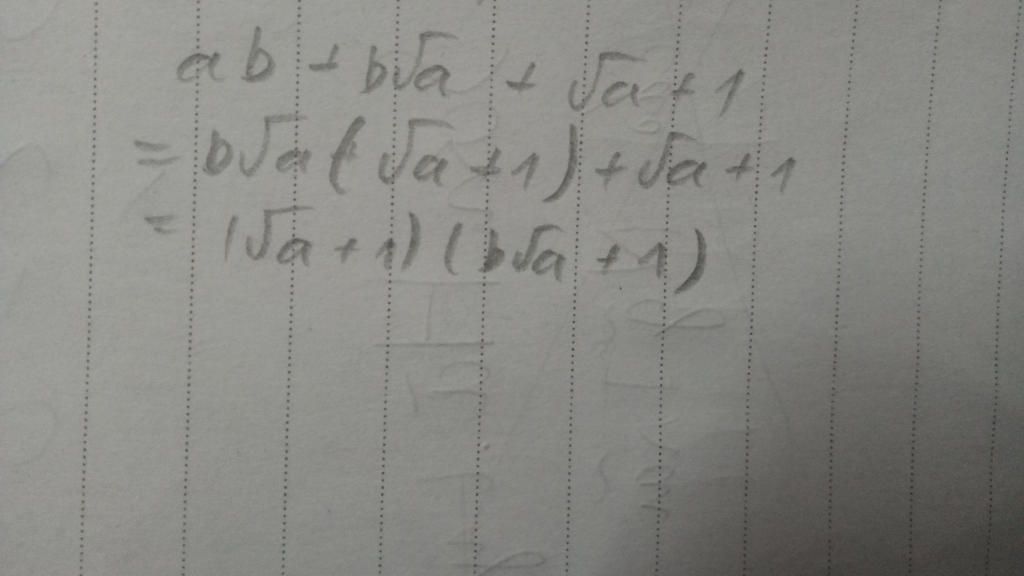 ab + b√a + √a + 1
= b√a (√a + 1) + √a + 1
= (√a + 1) (b√a + 1)